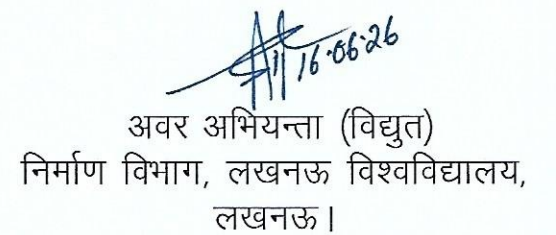 16.06.26
अवर अभियन्ता (विद्युत)
निर्माण विभाग, लखनऊ विश्वविद्यालय,
लखनऊ।